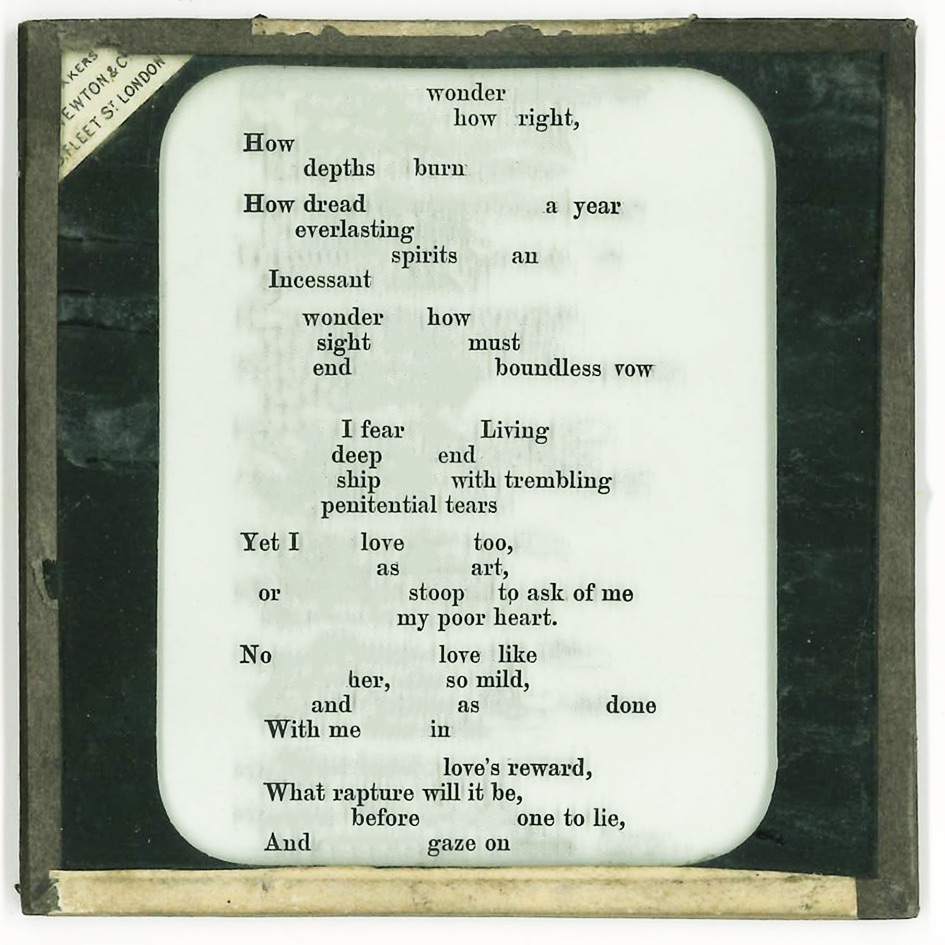 AKERS
EWTON & C
FLEET ST. LONDON
wonder
how right,
How
depths burn
How dread a year
everlasting
spirits an
Incessant
wonder how
sight must
end boundless vow
I fear Living
deep end
ship with trembling
penitential tears
Yet I love too,
as art,
or stoop to ask of me
my poor heart.
No love like
her, so mild,
and as done
With me in
love's reward,
What rapture will it be,
before one to lie,
And gaze on